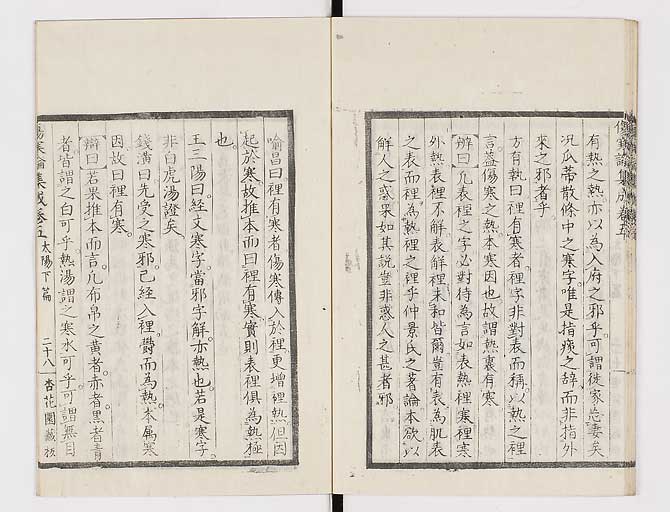 有熱之熱亦以為入府之邪乎可謂徙家忘妻矣
況瓜蒂散條中之寒字唯是指痰之辞而非指外
來之邪者乎
方有執曰裡有寒者裡字非對表而稱以熱之裡
言蓋傷寒之熱本寒因也故謂熱裏有寒
辨曰凡表裡之字必對待為言如表熱裡寒裡寒
外熱表裡不解表解裡未和皆爾豈有表為肌表
之表而裡為熱裡之裡乎仲景氏之著論本欲以
解人之惑果如其説豈非惑人之甚者邪
喻昌曰裡有寒者傷寒傳入於裡更增裡熱但因
起於寒故推本而曰裡有寒實則表裡俱為熱極
也
王三陽曰經文寒字當邪字解亦熱也若是寒字
非白虎湯證矣
錢潢曰先受之寒邪已經入裡欝而為熱本属寒
因故曰裡有寒
辨曰若果推本而言凡布帛之黄者赤者黒者青
者皆謂之白可乎熱湯謂之寒水可乎可謂無目
傷寒論集成卷五 太陽下篇 二十八 杏花園藏板